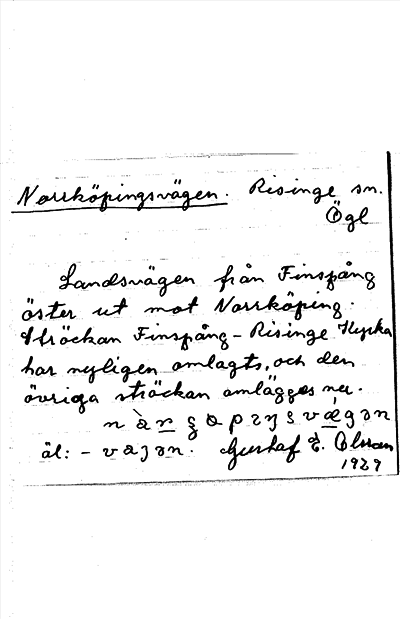 Norrköpingsvägen. Risinge sn.
Ögl
Landsvägen från Finspång
öster ut mot Norrköping.
Sträckan Finspång - Risinge Kyrka
har nyligen omlagts, och den
övriga sträckan omlägges nu.
äl: -
Gustaf E. Olsson
1929